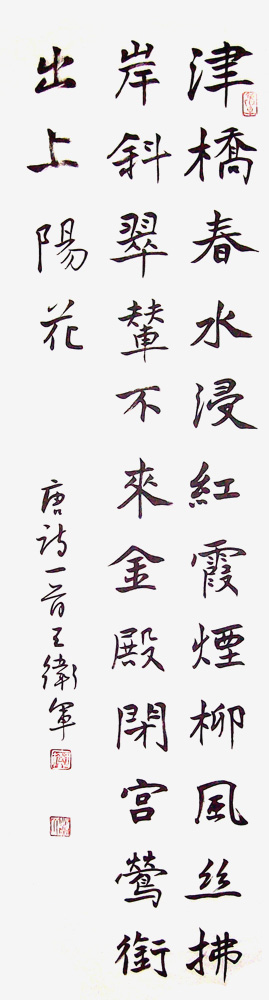 津橋春水浸紅霞煙柳風丝拂
岸斜翠輦不來金殿閉宫鶯銜
出上陽花
唐詩一首王衛軍